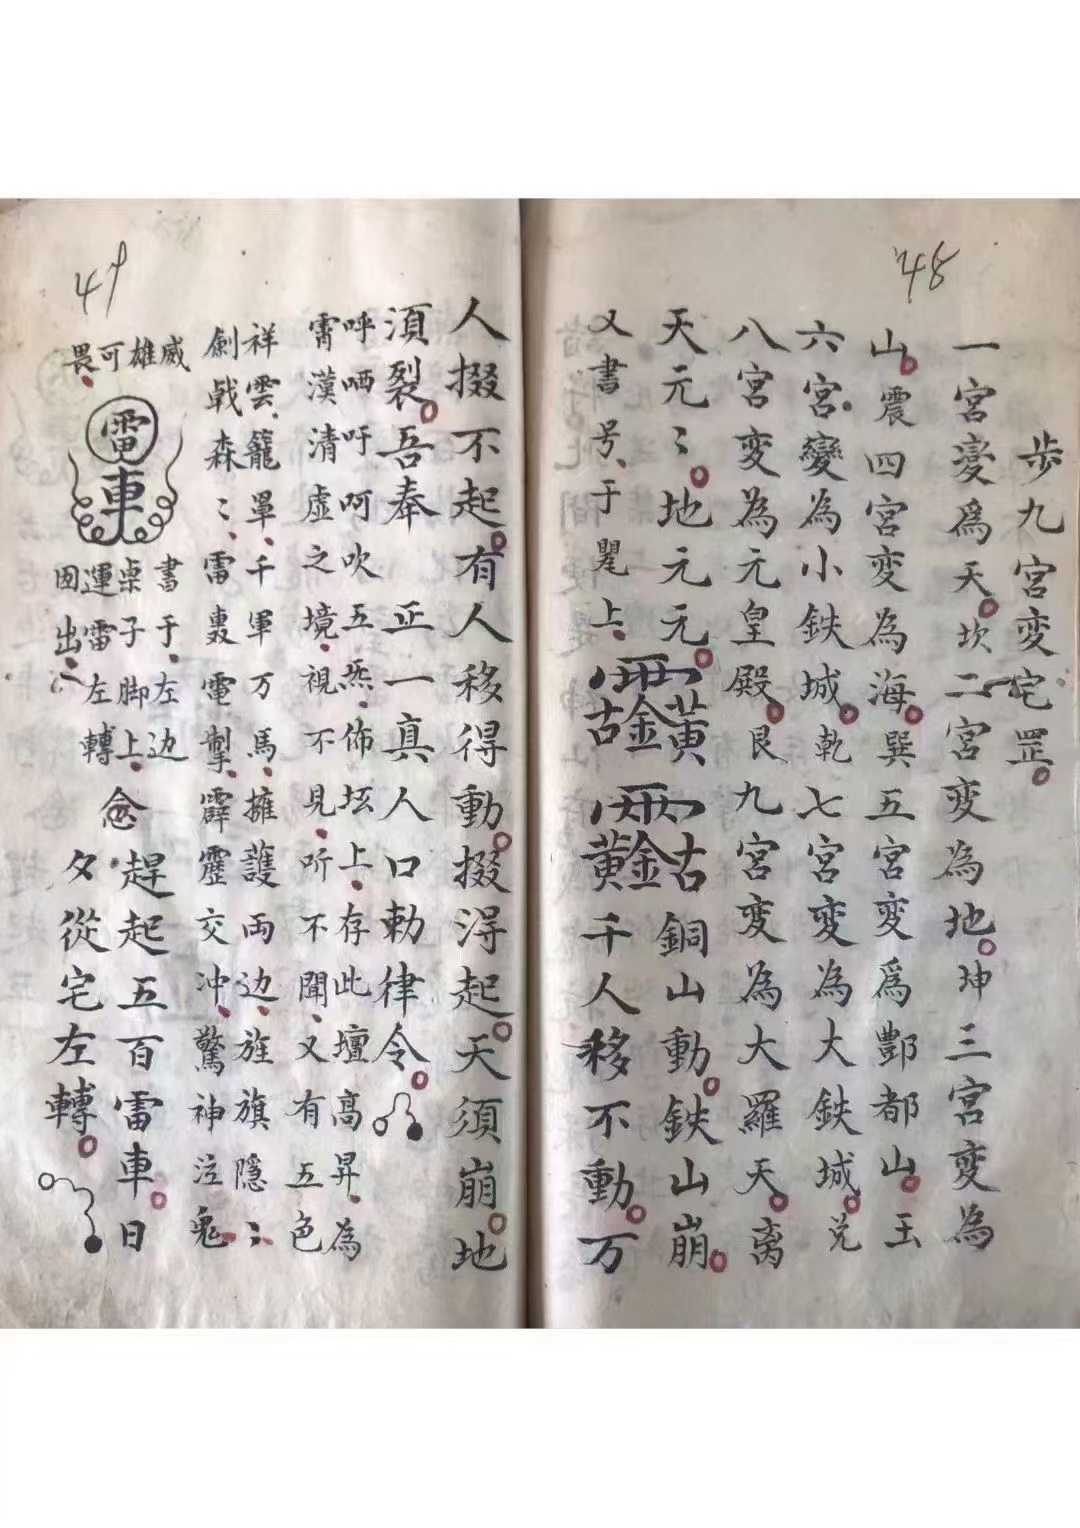 48
步九宮变宅罡
一宮变爲天坎二宮变為地坤三宮变為
山震四宮变為海巽五宮变爲酆都山玉
六宮變為小鉄城乾七宮变為大鉄城兌
八宮变為元皇殿艮九宮变為大羅天离
天元〻地元元
黄
古銅山動鉄山崩
又書号于罡上
古
黄千人移不動万
49
人掇不起有人移得動掇得起天須崩地
須裂吾奉正一真人口勅律令
呼哂吁呵吹五炁佈坛上存此壇高昇為
霄漢清虛之境視不見听不聞又有五色
祥雲籠罩千軍万馬擁護両边旌旗隱〻
劍戟森〻雷轟電掣霹靂交冲驚神泣鬼
威雄可畏
雷車
書于左边
桌子脚上
運雷左轉
因出
念趕起五百雷車日
夕從宅左轉